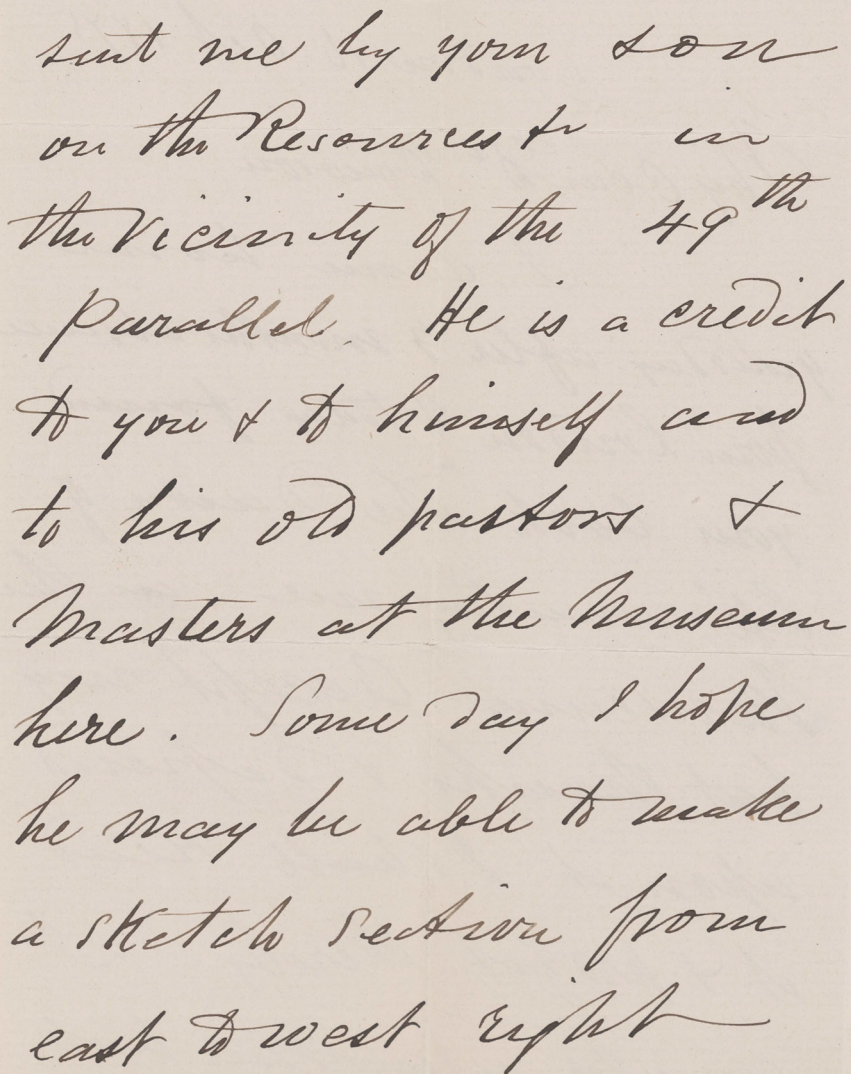 sent me by your son
on the Resources &c in
the Vicinity of the 49th
Parallel. He is a credit
to you & to himself and
to his old pastors &
Masters at the Museum
here. Some day I hope
he may be able to make
a sketch section from
east to west right